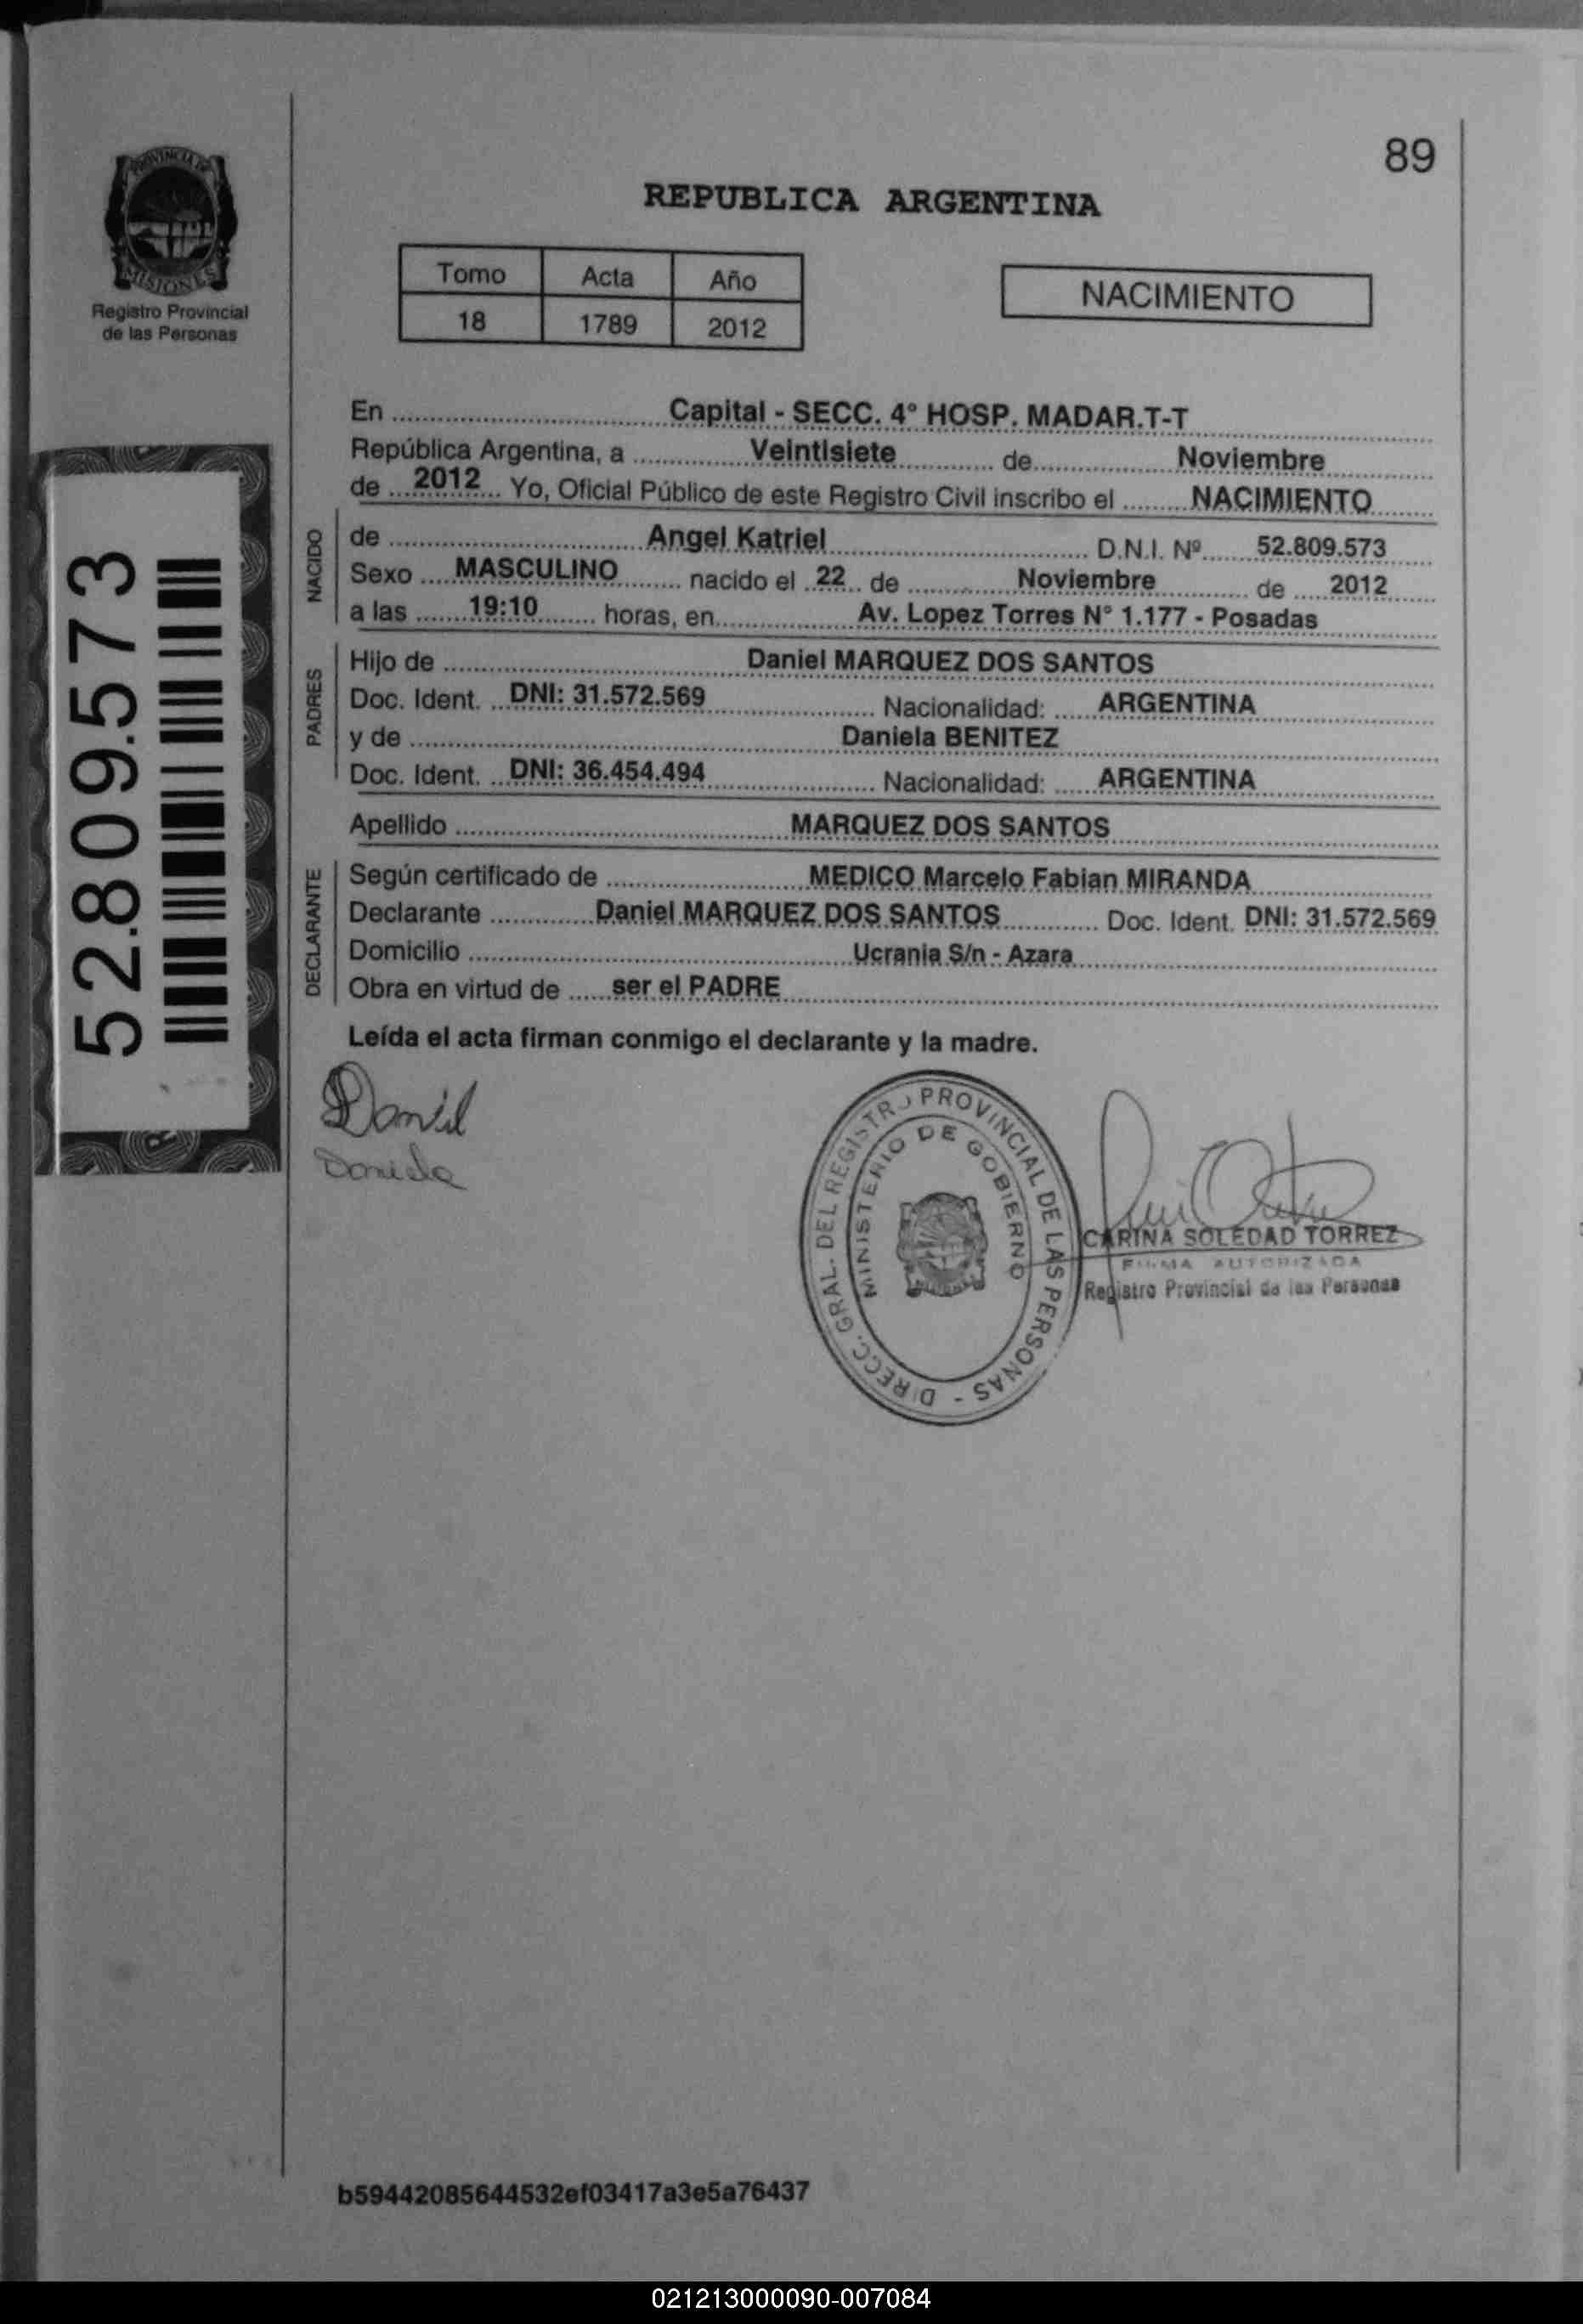 89
REPUBLICA ARGENTINA
PROVINCIA DE
MISIONES
Registro Provincial
de las Personas
Tomo Acta Año
18 1789 2012
NACIMIENTO
En Capital - SECC. 4° HOSP. MADAR.T-T
República Argentina, a Veintisiete de Noviembre
de 2012 Yo, Oficial Público de este Registro Civil inscribo el NACIMIENTO
NACIDO
de Angel Katriel D.N.I. Nº 52.809.573
Sexo MASCULINO nacido el 22 de Noviembre de 2012
a las 19:10 horas, en Av. Lopez Torres N° 1.177 - Posadas
PADRES
Hijo de Daniel MARQUEZ DOS SANTOS
Doc. Ident. DNI: 31.572.569 Nacionalidad: ARGENTINA
y de Daniela BENITEZ
Doc. Ident. DNI: 36.454.494 Nacionalidad: ARGENTINA
Apellido MARQUEZ DOS SANTOS
DECLARANTE
Según certificado de MEDICO Marcelo Fabian MIRANDA
Declarante Daniel MARQUEZ DOS SANTOS Doc. Ident. DNI: 31.572.569
Domicilio Ucrania S/n - Azara
Obra en virtud de ser el PADRE
Leída el acta firman conmigo el declarante y la madre.
52.809.573
Daniel
Daniela
DIRECC. GRAL. DEL REGISTRO PROVINCIAL DE LAS PERSONAS -
MINISTERIO DE GOBIERNO
CARINA SOLEDAD TORREZ
FIRMA AUTORIZADA
Registro Provincial de las Personas
b59442085644532ef03417a3e5a76437
021213000090-007084